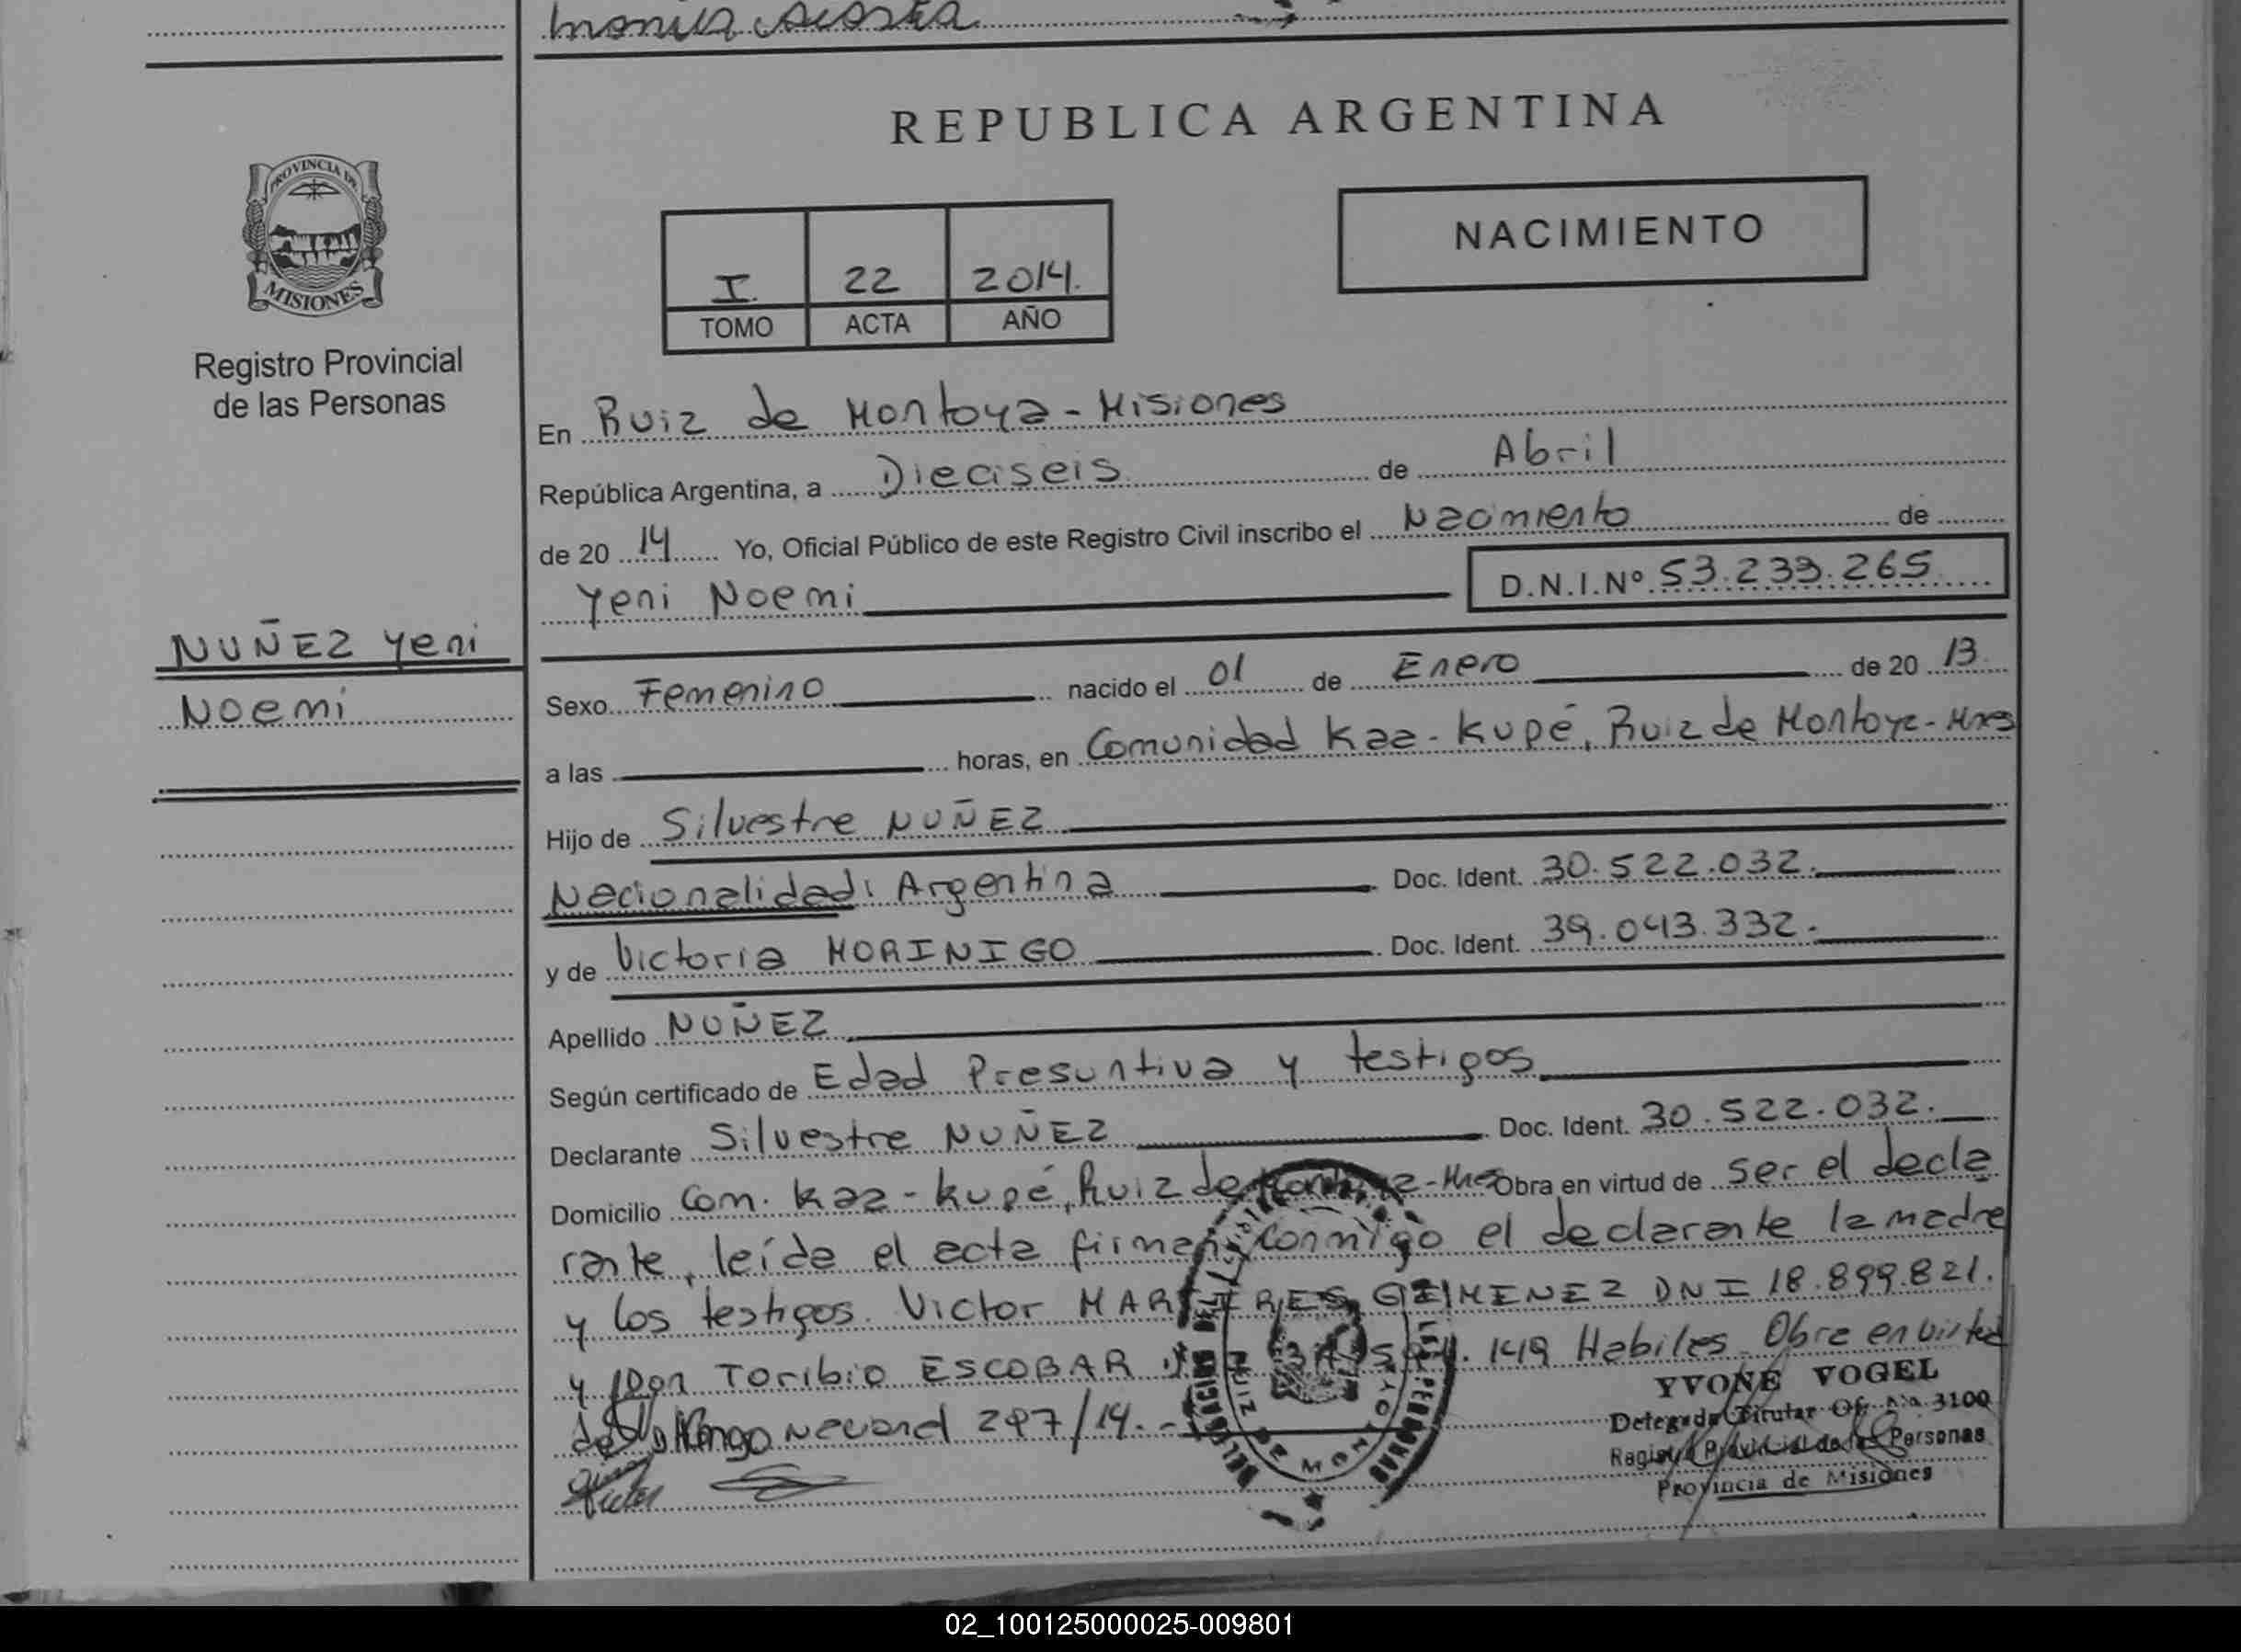 Monica Acosta
REPUBLICA ARGENTINA
PROVINCIA DE
MISIONES
Registro Provincial
de las Personas
NACIMIENTO
I. 22 2014.
TOMO ACTA AÑO
En Ruiz de Montoya - Misiones
República Argentina, a Dieciseis de Abril
de 20 14 Yo, Oficial Público de este Registro Civil inscribo el Nacimiento de
Yeni Noemi D.N.I.Nº 53.233.265
NUÑEZ Yeni
Noemi
Sexo Femenino nacido el 01 de Enero de 20 13
a las horas, en Comunidad Kaa-Kupé, Ruiz de Montoya - Mnes
Hijo de Silvestre NUÑEZ
Nacionalidad: Argentina Doc. Ident. 30.522.032.
y de Victoria MORINIGO Doc. Ident. 39.043.332.
Apellido NUÑEZ
Según certificado de Edad Presuntiva y testigos
Declarante Silvestre NUÑEZ Doc. Ident. 30.522.032.
Domicilio Com. Kaa-Kupé, Ruiz de Montoya - Mnes Obra en virtud de ser el decla
rante, leída el acta firman conmigo el declarante la madre
y los testigos. Victor GIMENEZ DNI 18.899.821.
y Don Toribio ESCOBAR 149 Habiles. Obra en virtud
Nevand 297/14.-
YVONE VOGEL
Delegada Titular Of. Nº 3100
Registro Provincial de las Personas
Provincia de Misiones
RUIZ DE MONTOYA
02_100125000025-009801